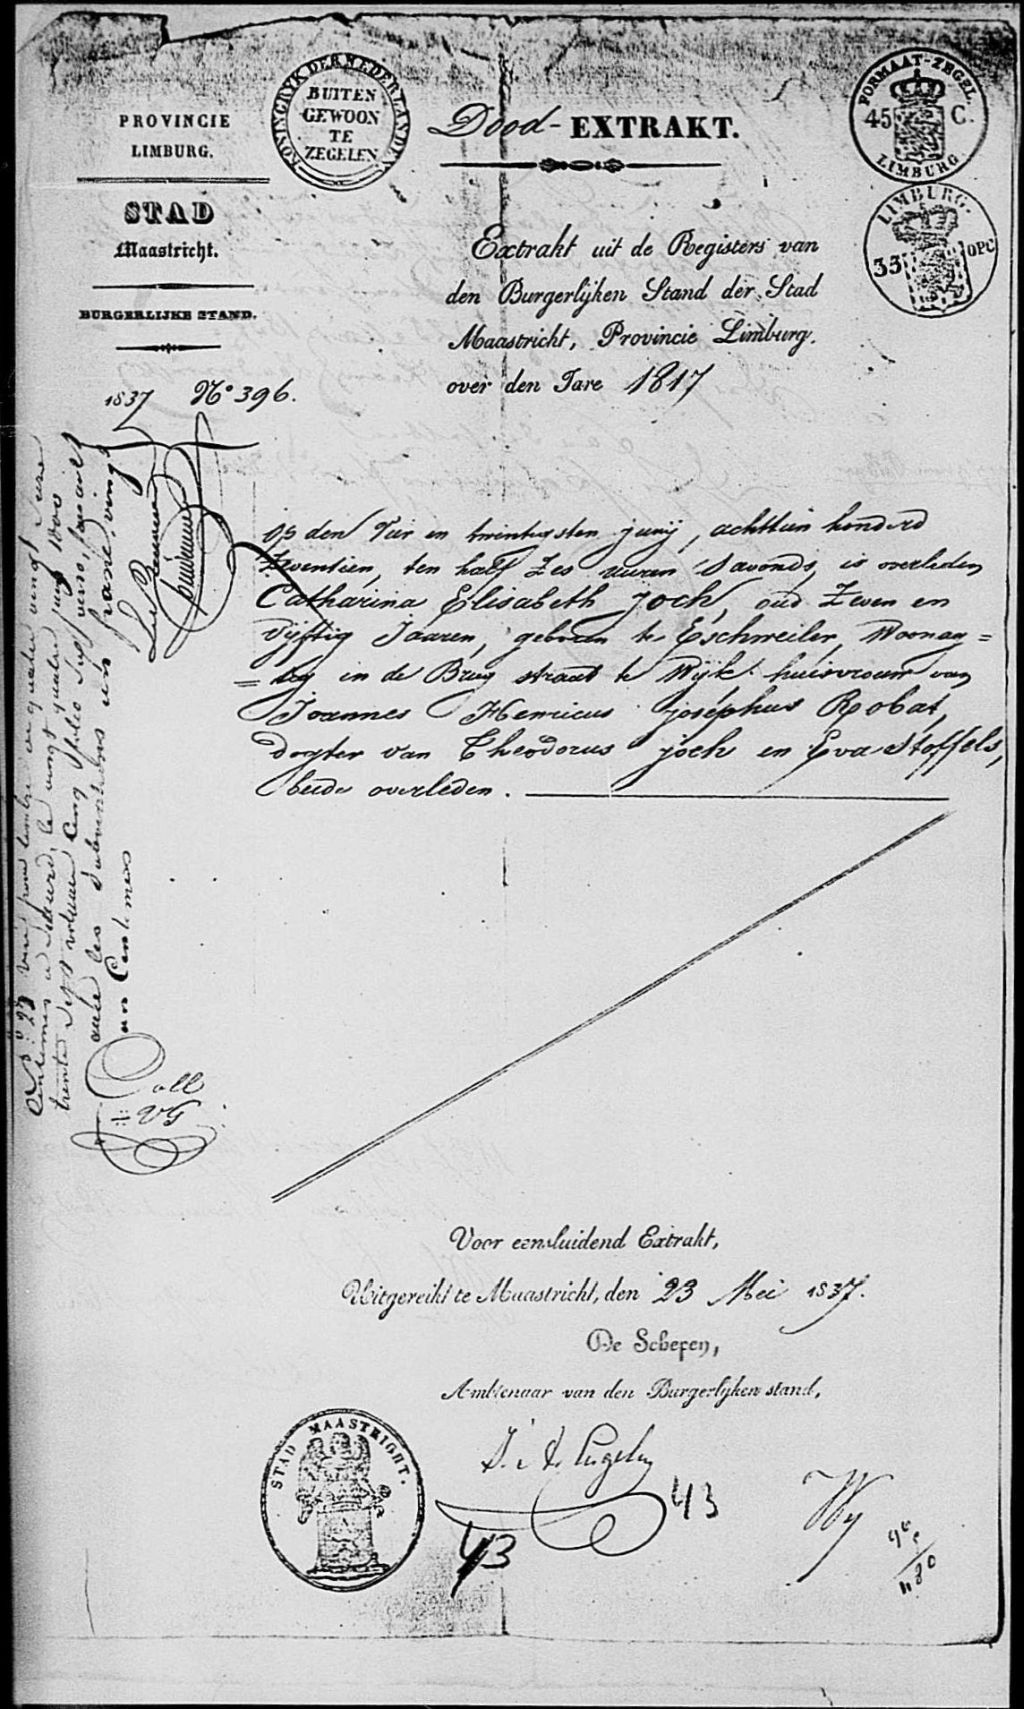 PROVINCIE
LIMBURG.
STAD
Maastricht.
BURGERLIJKE STAND.
1837 No 396.
KONINGRYK DER NEDERLANDEN
BUITEN
GEWOON
TE
ZEGELEN
Dood-EXTRAKT.
FORMAAT-ZEGEL.
45 C.
LIMBURG
LIMBURG.
35 OPC
Extrakt uit de Registers van
den Burgerlijken Stand der Stad
Maastricht, Provincie Limburg.
over den Jare 1817
Op den Vier en twintigsten junij, achttien honderd
Zeventien, ten half Zes uuren 's avonds, is overleden
Catharina Elisabeth Joch, oud Zeven en
Vijftig Jaaren, geboren te Eschweiler, Woonag=
=tig in de Brug straat te Wijk huisvrouw van
Joannes Henricus josephus Robat,
dogter van Theodorus joch en Eva Stoffels,
beide overleden.
Voor eensluidend Extrakt,
Uitgereikt te Maastricht, den 23 Mei 1837.
De Schepen,
Ambtenaar van den Burgerlijken stand,
STAD MAASTRIGHT.
43
43